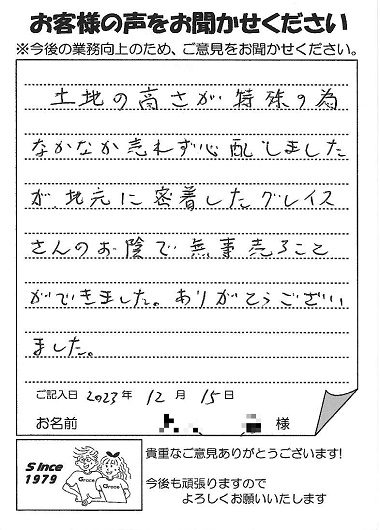 お客様の声をお聞かせください
※今後の業務向上のため、ご意見をお聞かせください。
土地の高さが特殊の為
なかなか売れず心配しました
が地元に密着したグレイス
さんのお陰で無事売ること
ができました。ありがとうござい
ました。
ご記入日 2023年 12月 15日
お名前 様
Since
1979
Grace
Grace
貴重なご意見ありがとうございます!
今後も頑張りますので
よろしくお願いいたします